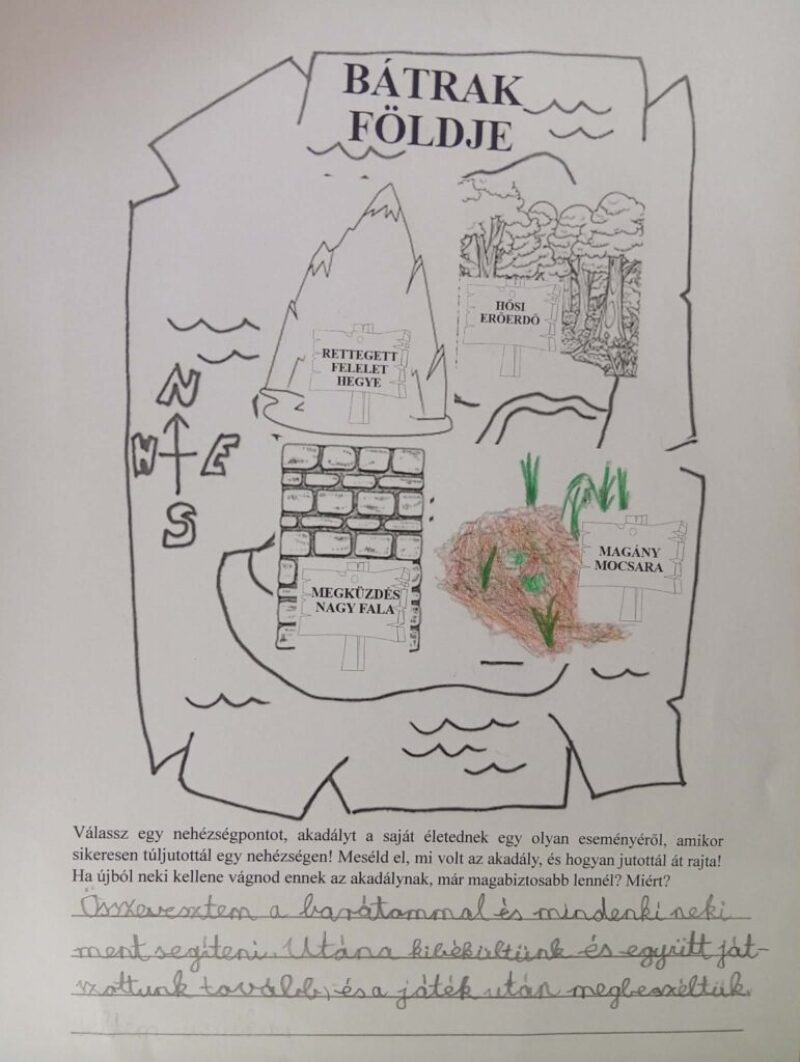 BÁTRAK
FÖLDJE
HŐSI
ERŐERDŐ
RETTEGETT
FELELET
HEGYE
N
W E
S
MAGÁNY
MOCSARA
MEGKÜZDÉS
NAGY FALA
Válassz egy nehézségpontot, akadályt a saját életednek egy olyan eseményéről, amikor
sikeresen túljutottál egy nehézségen! Meséld el, mi volt az akadály, és hogyan jutottál át rajta!
Ha újból neki kellene vágnod ennek az akadálynak, már magabiztosabb lennél? Miért?
Összevesztem a barátommal és mindenki neki
ment segíteni. Utána kibékültünk és együtt ját-
szottunk tovább, és a játék után megbeszéltük.